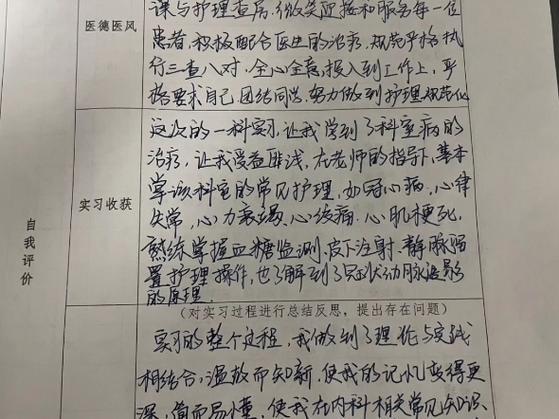 课与护理查房,微笑迎接和服务每一位
医德医风
患者,积极配合医生的治疗,规范严格执
行三查八对,全心全意投入到工作上,严
格要求自己,团结同学,努力做到护理规范化
这次的一科实习,让我学到了科室病的
治疗,让我受益匪浅,在老师的指导下,基本
掌该科室的常见护理,如冠心病,心律
实习收获
失常,心力衰竭,心绞痛,心肌梗死,
熟练掌握血糖监测,皮下注射,静脉留
置护理操作,也了解到了冠状动脉造影
的原理.
自我评价
(对实习过程进行总结反思,提出存在问题)
实习的整个过程,我做到了理论与实践
相结合,温故而知新,使我的记忆变得更
深,简而易懂,使我在内科相关常见知识、